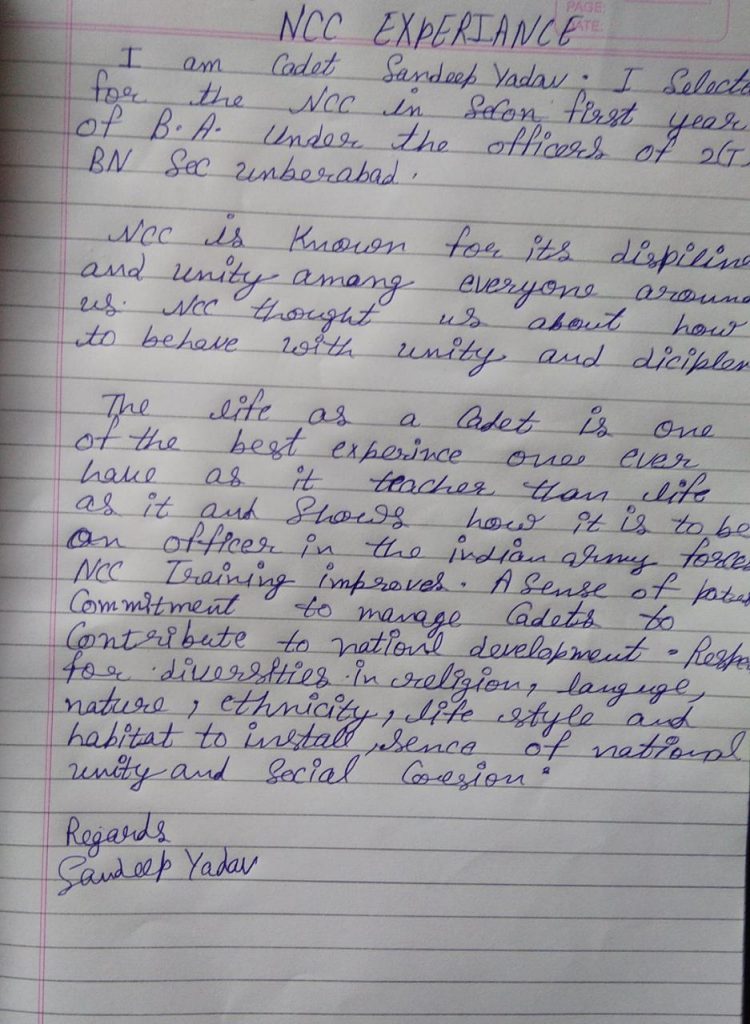 PAGE
DATE:
NCC EXPERIANCE
I am Cadet Sandeep Yadav. I Select
for the NCC in first year
of B.A. Under the officers of 2(T
BN Sec unberabad.
NCC is Known for its dispiline
and unity amang everyone around
us. NCC thought us about how
to behave with unity and diciplen
The life as a Cadet is one
of the best experince ones ever
have as it teacher than life
as it and Shows how it is to be
an officer in the indian army forces
NCC Training improves. A Sense of
Commitment to manage Cadets to
Contribute to nationl development. Respe
for diversities in religion, languge,
nature, ethnicity, life style and
habitat to install sence of national
unity and Social Coesion.
Regards
Sandeep Yadav